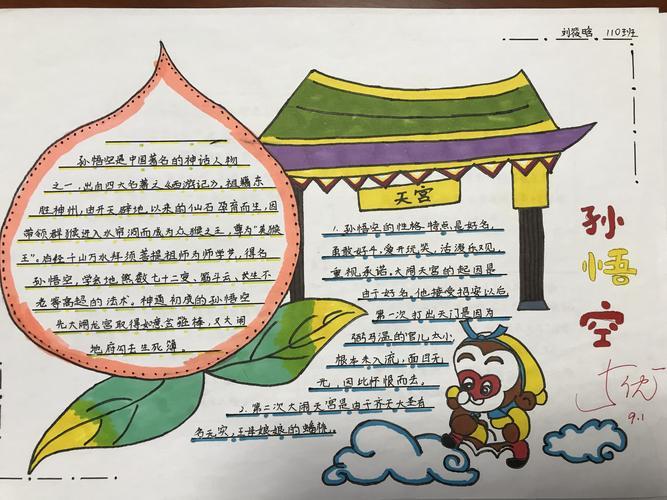 刘筱晗 1103班
孙悟空是中国著名的神话人物
之一,出自四大名著之《西游记》,祖籍东
胜神州,由开天辟地以来的仙石孕育而生,因
带领群猴进入水帘洞而成为众猴之王,尊为"美猴
王",后经千山万水拜须菩提祖师为师学艺,得名
孙悟空,学会地煞数七十二变、筋斗云、长生不
老等高超的法术。神通初成的孙悟空
先大闹龙宫取得如意金箍棒,又大闹
地府勾去生死簿
天宫
1.孙悟空的性格特点是好名,
勇敢好斗,爱开玩笑,活泼乐观,
重视承诺,大闹天宫的起因是
由于好名,他接受招安以后,
第一次打出天门是因为
弼马温的官儿太小,
根本未入流,面目无
光,因此怀恨而去。
2.第二次大闹天宫是由于齐天大圣有
名无实,王母娘娘的蟠桃
孙
悟
空
优
9.1